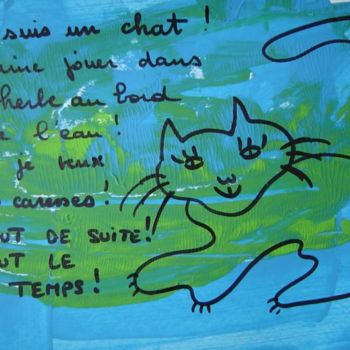 suis un chat !
jouer dans
herbe au bord
l'eau !
je veux
caresses !
DE SUITE !
LE
TEMPS !